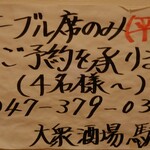 ーブル席のみ(平
ご予約を承り
(4名様〜)
047-379-03
大衆酒場 馬